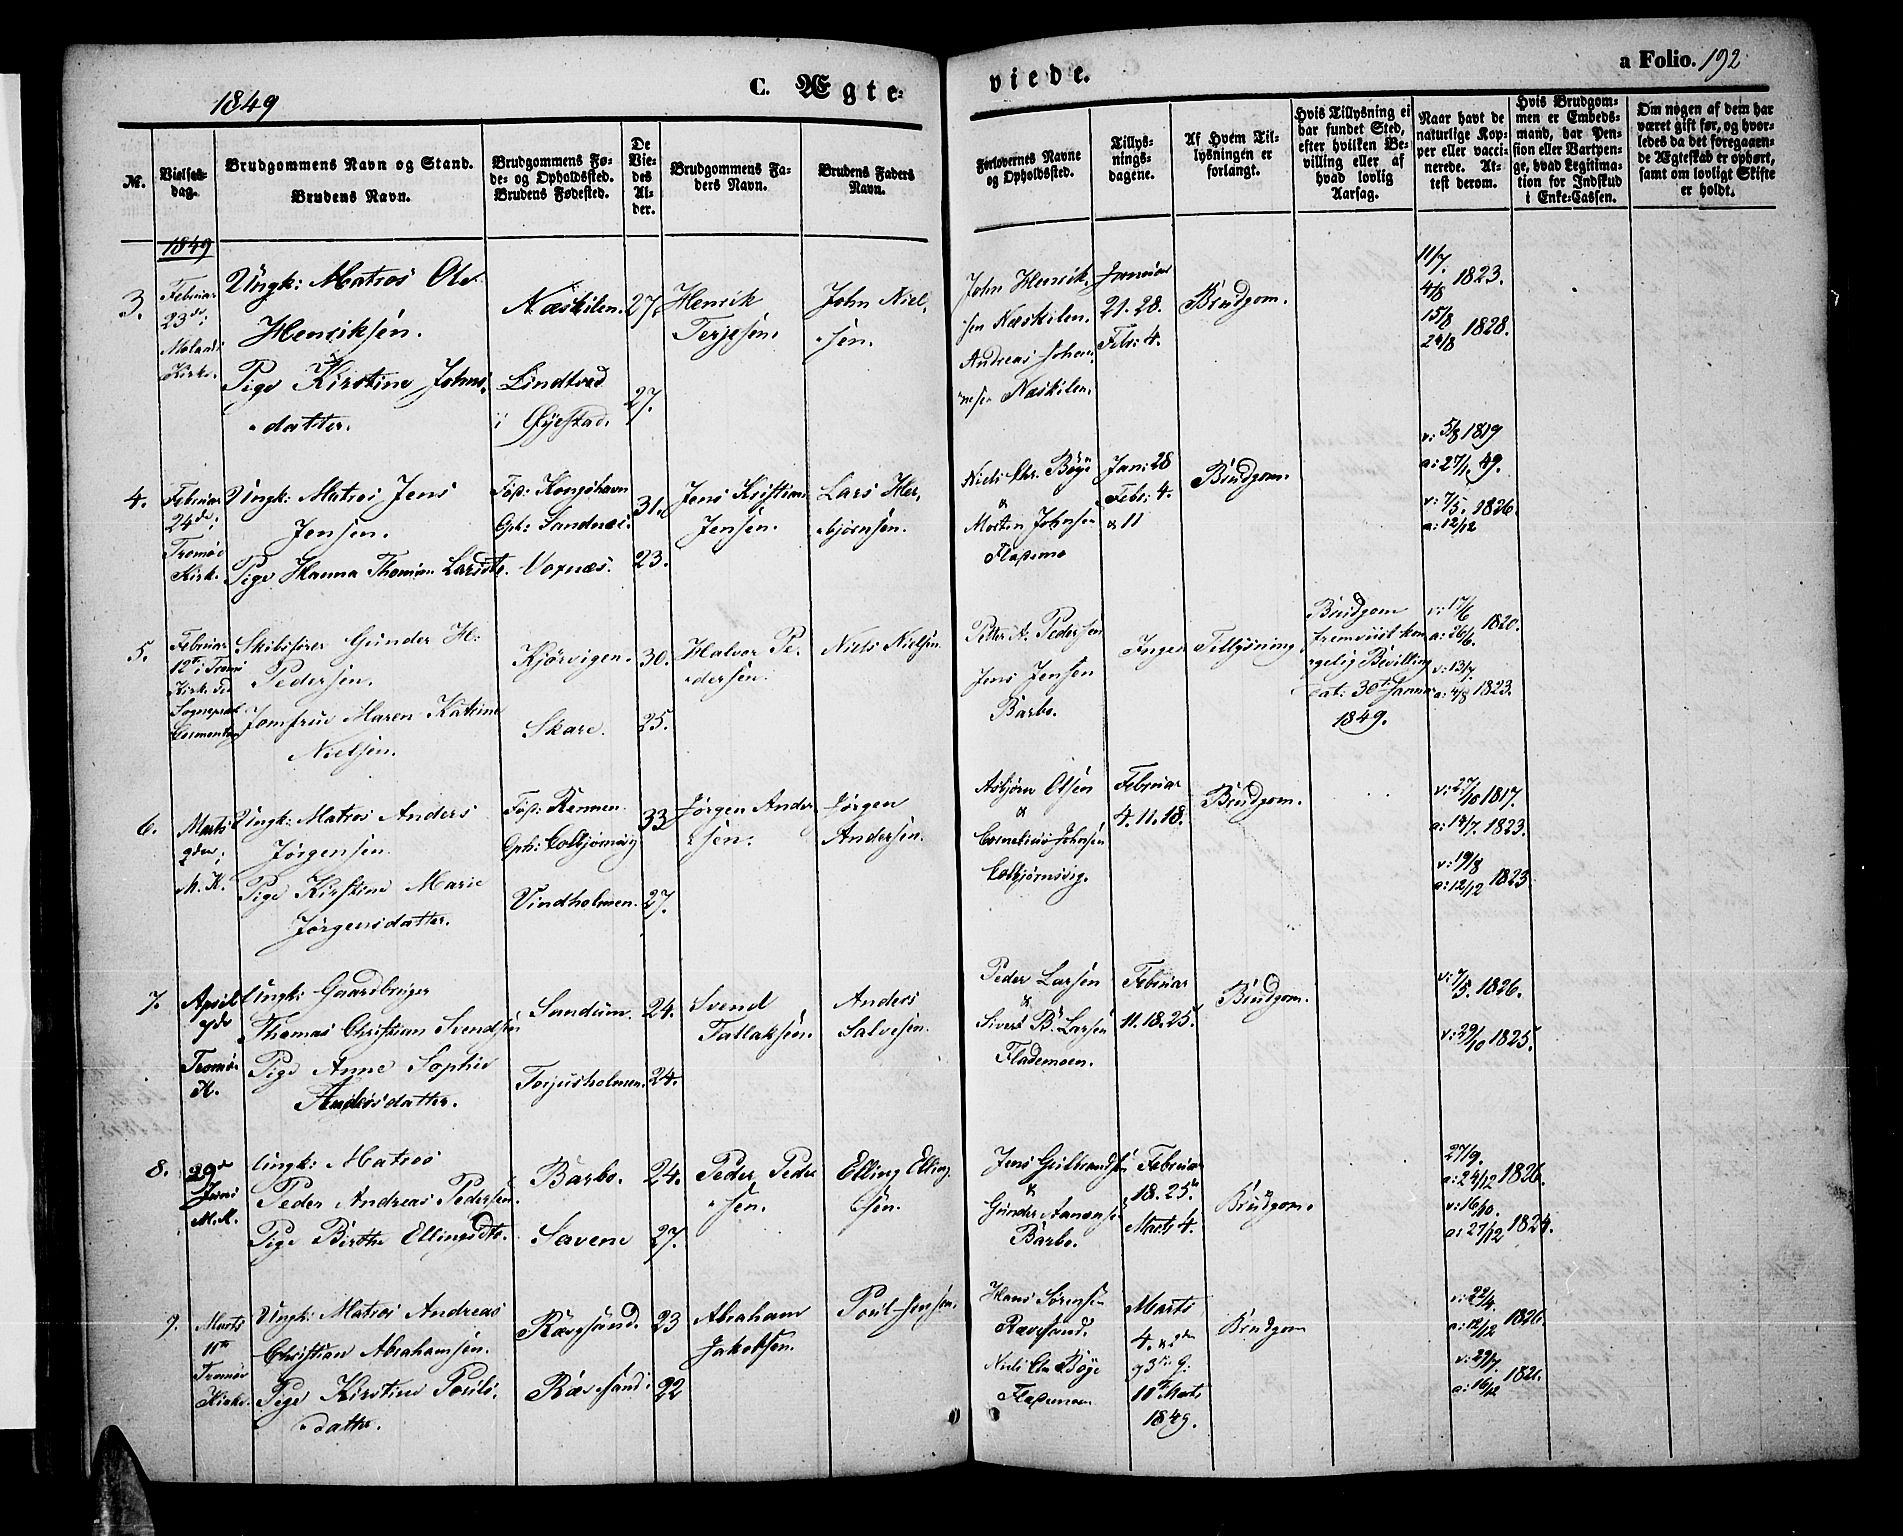 1849
C. Ægte-
viede.
a Folio. 192
№.
Vielses-
dag.
Brudgommens Navn og Stand.
Brudens Navn.
Brudgommens Fø-
de- og Opholdssted.
Brudens Fødested.
De
Vie-
des
Al-
der.
Brudgommens Fa-
ders Navn.
Brudens Faders
Navn.
Forlovernes Navne
og Opholdssted.
Tillys-
nings-
dagene.
Af Hvem Til-
lysningen er
forlangt.
Hvis Tillysning ei
har fundet Sted,
efter hvilken Be-
villing eller af
hvad lovlig
Aarsag.
Naar havt de
naturlige Kop-
per eller vacci-
nerede. At-
test derom.
Hvis Brudgom-
men er Embeds-
mand, har Pen-
sion eller Vartpen-
ge, hvad Legitima-
tion for Indskud
i Enke-Cassen.
Om nogen af dem har
været gift før, og hvor-
ledes da det foregaaen-
de Ægteskab er ophørt,
samt om lovligt Skifte
er holdt.
1849
3.
Februar
23de;
Molands
Kirke.
Ungk: Matros Ole
Henriksen.
Pige Kirstine Johns-
datter.
Næskilen.
Lindtved
i Øyestad.
27.
27.
Henrik
Terjesen.
John Niel-
sen.
John Henrik-
sen Næskilen.
Andreas Johan-
nesen Næskilen.
Januar
21. 28.
Febr: 4.
Brudgom.
11/7
4/8 1823.
15/8
24/8 1828.
4.
Februar
24de;
Tromøe
Kirk.
Ungk: Matros Jens
Jensen.
Pige Hanna Thomine Larsdtr.
Føp: Kongshavn
Oph: Sandnæs.
Voxnæs.
31.
23.
Jens Kristian
Jensen.
Lars Her-
bjørnsen.
Niels Chr. Bøye
&
Morten Johnsen
Flademo
Jan: 28
Febr: 4.
& 11
Brudgom.
v: 5/8 1819
a: 27/1 49.
v: 7/5 1826.
a: 12/12
5.
Februar
12te i Tromø
Kirke ved
Sognepræst
Skibsfører Gunder H.
Pedersen.
Jomfrue Maren Katrine
Nielsen.
Kjørvigen.
Skare.
30.
25.
Halvor Pe-
dersen.
Niels Nielsen.
Petter A. Pedersen
Jens Jensen
Barbo.
Ingen Tillysning
Brudgom
fremviist kon-
gelig Bevilling
dat: 30te Januar
1849.
v: 17/6
a: 26/6 1820.
v: 13/7
a: 4/8 1823.
6.
Marts
9de;
M. K.
Ungk: Matros Anders
Jørgensen.
Pige Kirstine Marie
Jørgensdatter.
Føp: Rennen.
Oph: Colbjørnsvig
Vindholmen.
33
27.
Jørgen Ander-
sen.
Jørgen
Andersen.
Asbjørn Olsen
&
Cornelius Johnsen
Colbjørnsvig.
Februar
4. 11. 18.
Brudgom.
v: 27/10 1817.
a: 14/7 1823.
v: 19/8
a: 12/12 1823.
7.
April
7de
Tromø
K.
Ungk: Gaardbruger
Thomas Christian Svendsen
Pige Anne Sophie
Andersdatter.
Sandum.
Torjusholmen.
24.
24.
Svend
Tallaksen.
Anders
Salvesen.
Peder Larsen
&
Sivert B. Larsen
Flademoen.
Februar
11. 18. 25.
Brudgom.
v: 7/5. 1826.
v: 29/10 1825.
8.
29de
Juni
M. K.
Ungk: Matros
Peder Andreas Pedersen.
Pige Birthe Ellingsdtr.
Barbo.
Savene
24.
27.
Peder Peder-
sen.
Elling Elling-
sen.
Jens Gulbrandsen
&
Gunder Aanonsen
Barbo.
Februar
18. 25.
Marts 4.
Brudgom.
27/9.
a: 24/12 1826.
v: 16/10.
a: 27/12 1824.
9.
Marts
11te
Tromøe
Kirke.
Ungk: Matros Andreas
Christian Abrahamsen.
Pige Kirstine Pouls-
datter.
Rævesand.
Rævesand.
23
22
Abraham
Jakobsen.
Poul Jensen.
Hans Sørensen
Rævesand.
Niels Chr Bøye
Flademoen
Marts
4.
1849.
Brudgom
v: 22/4.
a: 12/12 1826.
v: 29/7.
a: 16/12 1821.